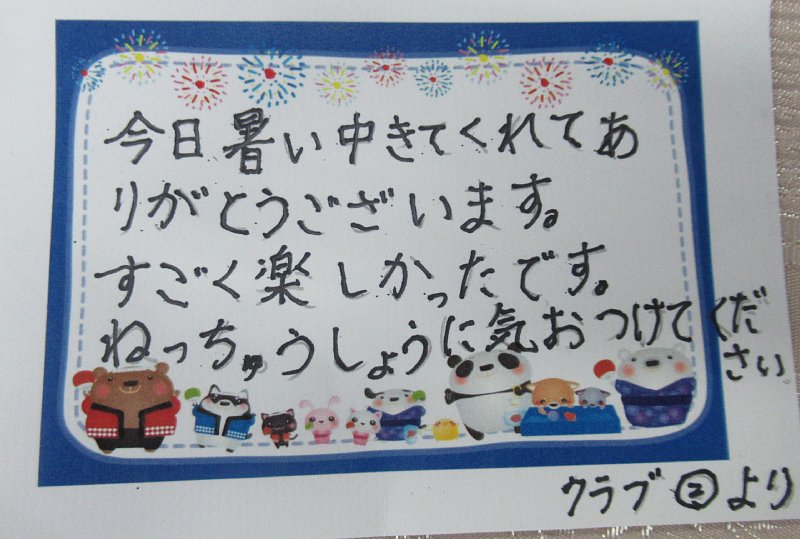 今日暑い中きてくれてあ
りがとうございます。
すごく楽しかったです。
ねっちゅうしょうに気おつけてくだ
さい
クラブ②より